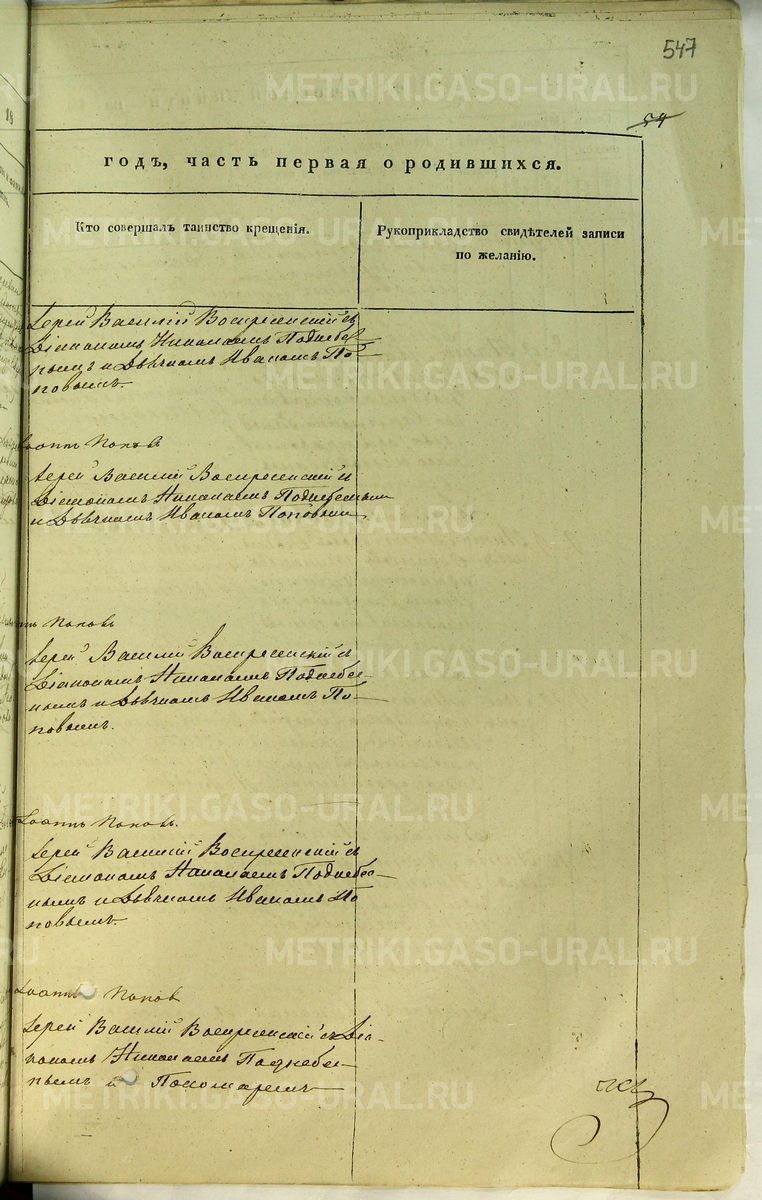 547
54
годъ, часть первая о родившихся.
Кто совершалъ таинство крещенія.
Рукоприкладство свидѣтелей записи
по желанію.
Іерей Василій Воскресенскій съ
Діакономъ Николаемъ Поднебес
нымъ и Дьячкомъ Иваномъ По
повымъ.
Іоаннъ Поповъ
Іерей Василій Воскресенскій съ
Діакономъ Николаемъ Поднебеснымъ
и Дьячкомъ Иваномъ Поповымъ
Поповъ
Іерей Василій Воскресенскій съ
Діакономъ Николаемъ Поднебес-
нымъ и Дьячкомъ Иваномъ По-
повымъ.
Іоаннъ Поповъ.
Іерей Василій Воскресенскій съ
Діакономъ Николаемъ Поднебес-
нымъ и Дьячкомъ Иваномъ По
повымъ.
Іоаннъ Поповъ
Іерей Василій Воскресенскій съ Діа-
кономъ Николаемъ Поднебес-
нымъ и Пономаремъ
METRIKI.GASO-URAL.RU